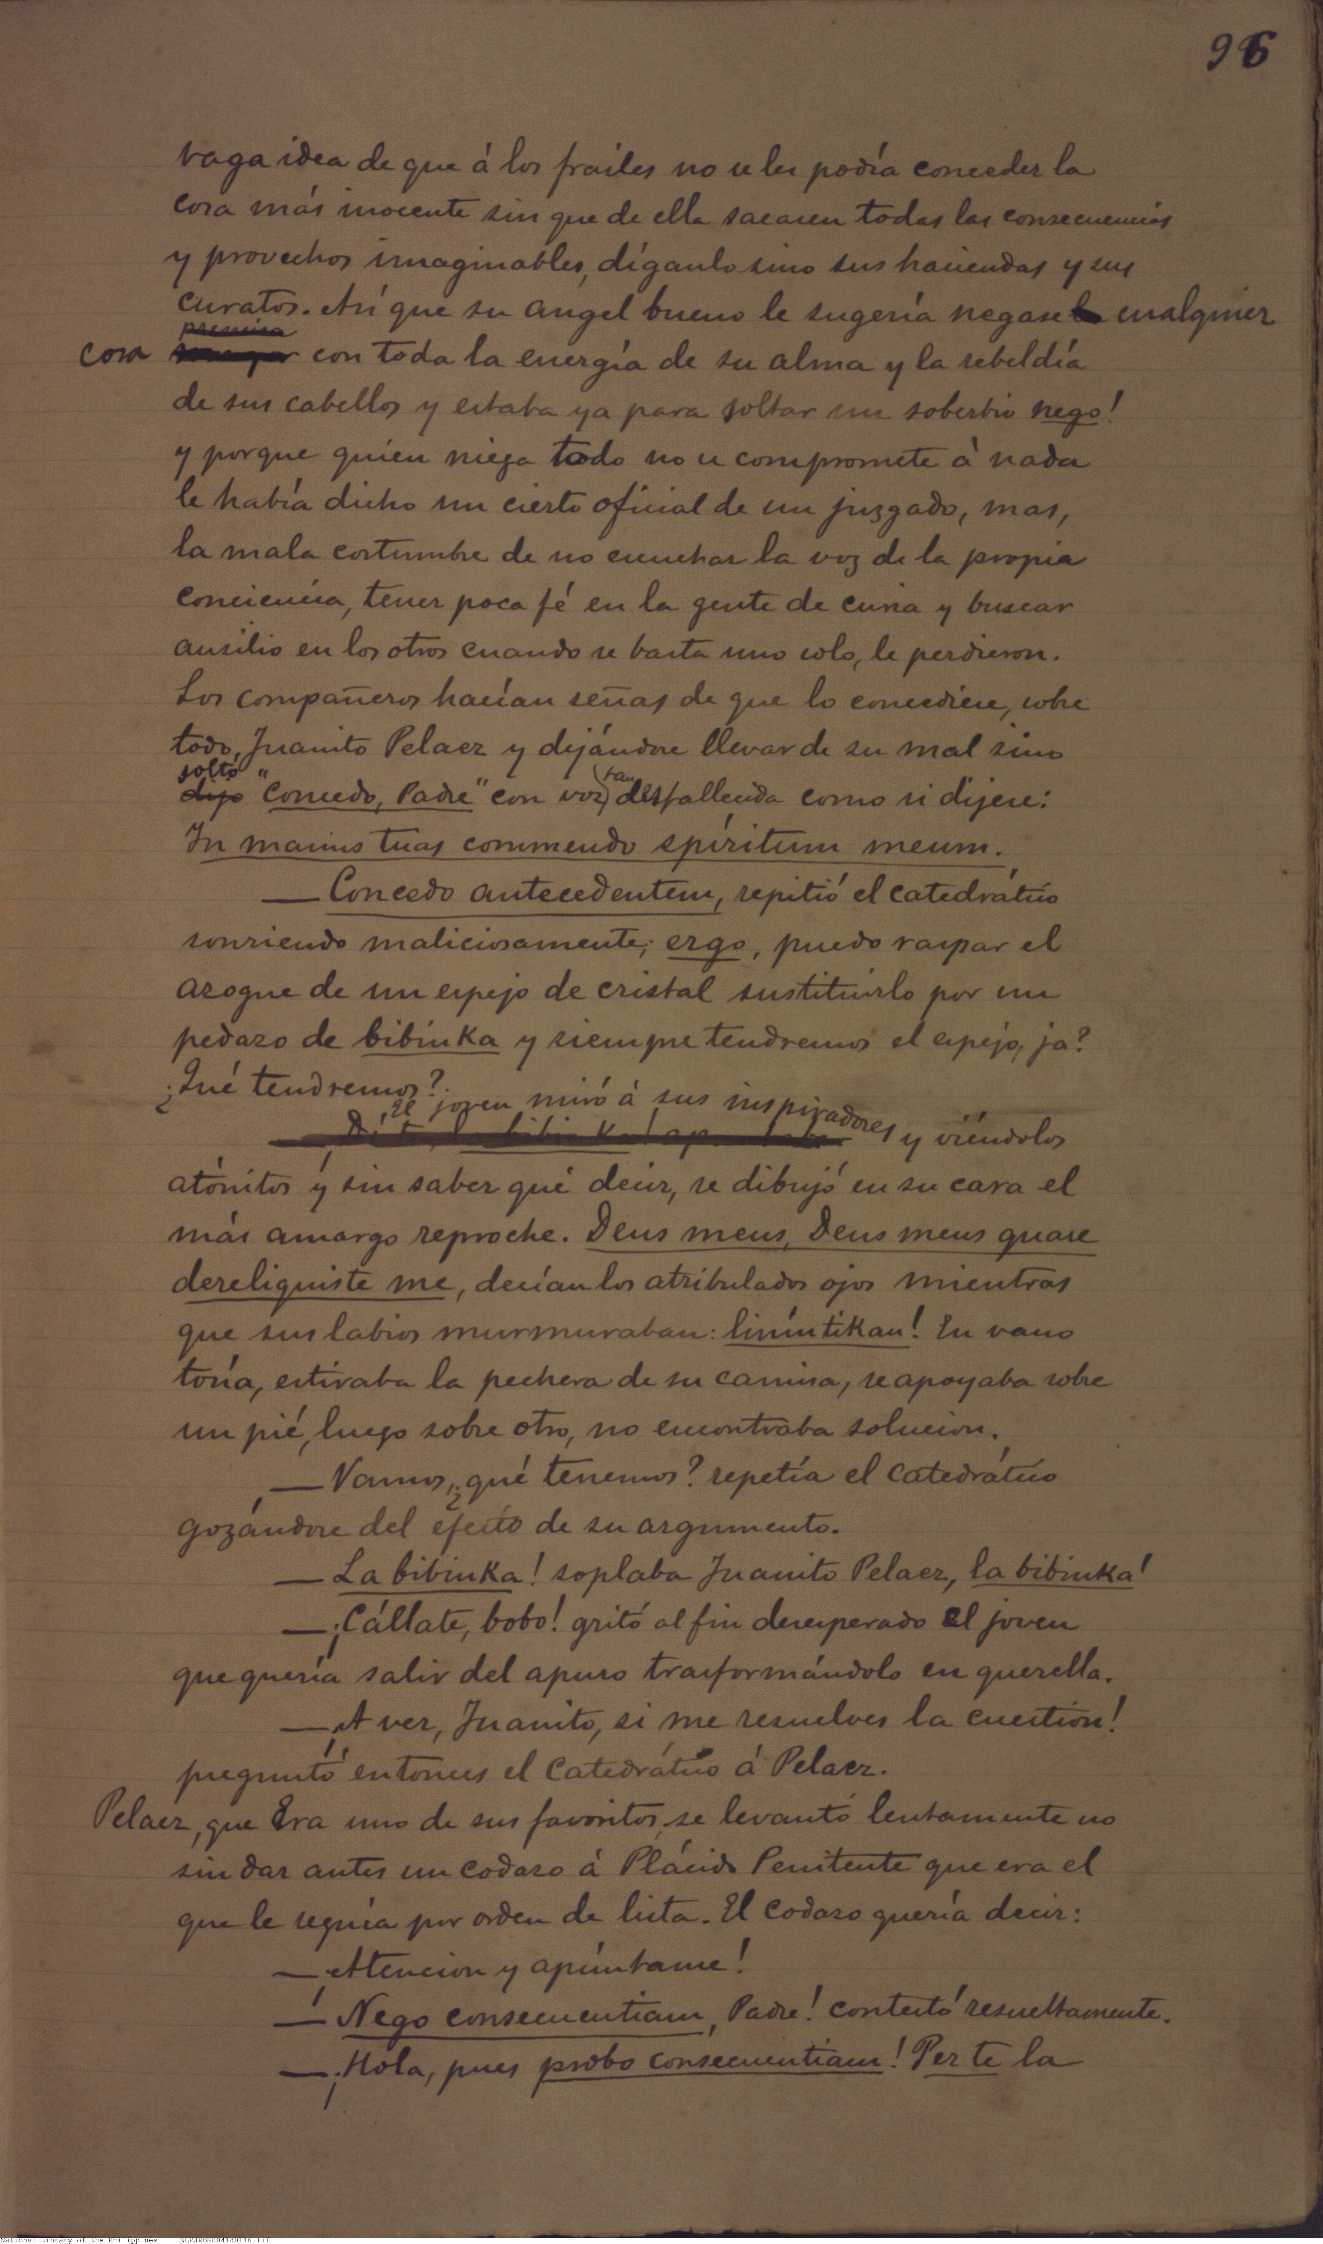 96
vaga idea de que á los frailes no se les podía conceder la
cosa más inocente sin que de ella sacasen todas las consecuencias
y provechos imaginables, díganlo sino sus haciendas y sus
curatos. Así que su angel bueno le sugería negase cualquier
premisa
cosa con toda la energía de su alma y la rebeldía
de sus cabellos y estaba ya para soltar un soberbio nego!
y porque quien niega todo no se compromete á nada
le había dicho un cierto oficial de un juzgado, mas,
la mala costumbre de no escuchar la voz de la propia
conciencia, tener poca fé en la gente de curia y buscar
ausilio en los otros cuando se basta uno solo, le perdieron.
Los compañeros hacían señas de que lo concediese, sobre
todo, Juanito Pelaez y dejándose llevar de su mal sino
soltó tan
dijo "Concedo, Padre" con voz desfallecida como si dijese:
In manus tuas commendo spíritum meum.
— Concedo antecedentem, repitió el catedrático
sonriendo maliciosamente; ergo, puedo raspar el
azogue de un espejo de cristal sustituirlo por un
pedazo de bibinka y siempre tendremos el espejo, ja?
¿Qué tendremos?
El joven miró á sus inspiradores y viéndolos
atónitos y sin saber qué decir, se dibujó en su cara el
más amargo reproche. Deus meus, Deus meus quare
dereliquiste me, decían los atribulados ojos mientras
que sus labios murmuraban: linintikan! En vano
tosía, estiraba la pechera de su camisa, se apoyaba sobre
un pié, luego sobre otro, no encontraba solucion.
— Vamos, ¿qué tenemos? repetía el Catedrático
gozándose del efecto de su argumento.
— La bibinka! soplaba Juanito Pelaez, la bibinka!
— ¡Cállate, bobo! gritó al fin desesperado el joven
que quería salir del apuro trasformándolo en querella.
— ¡A ver, Juanito, si me resuelves la cuestion!
preguntó entonces el Catedrático á Pelaez.
Pelaez, que era uno de sus favoritos, se levantó lentamente no
sin dar antes un codazo á Plácido Penitente que era el
que le seguía por orden de lista. El codazo quería decir:
— ¡Atencion y apúntame!
— Nego consecuentiam, Padre! contestó resueltamente.
— ¡Hola, pues probo consecuentiam! Per te la